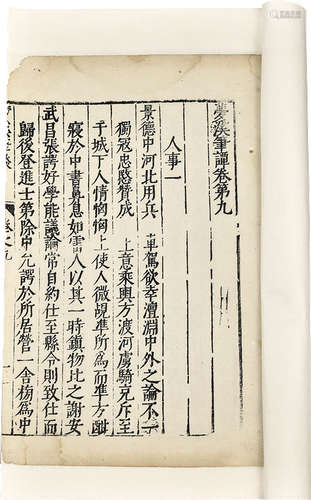 夢溪筆談卷第九
人事一
景德中河北用兵　車駕欲幸澶淵中外之論不一
獨冦忠愍贊成　上意乗輿方渡河虜騎充斥至
于城下人情恟恟　上使人微覘準所爲而準方酣
寢於中書鼻息如雷人以其一時鎭物比之謝安
武昌張諤好學能議論常自約仕至縣令則致仕而
歸後登進士第除中允諤於所居營一舍榜爲中